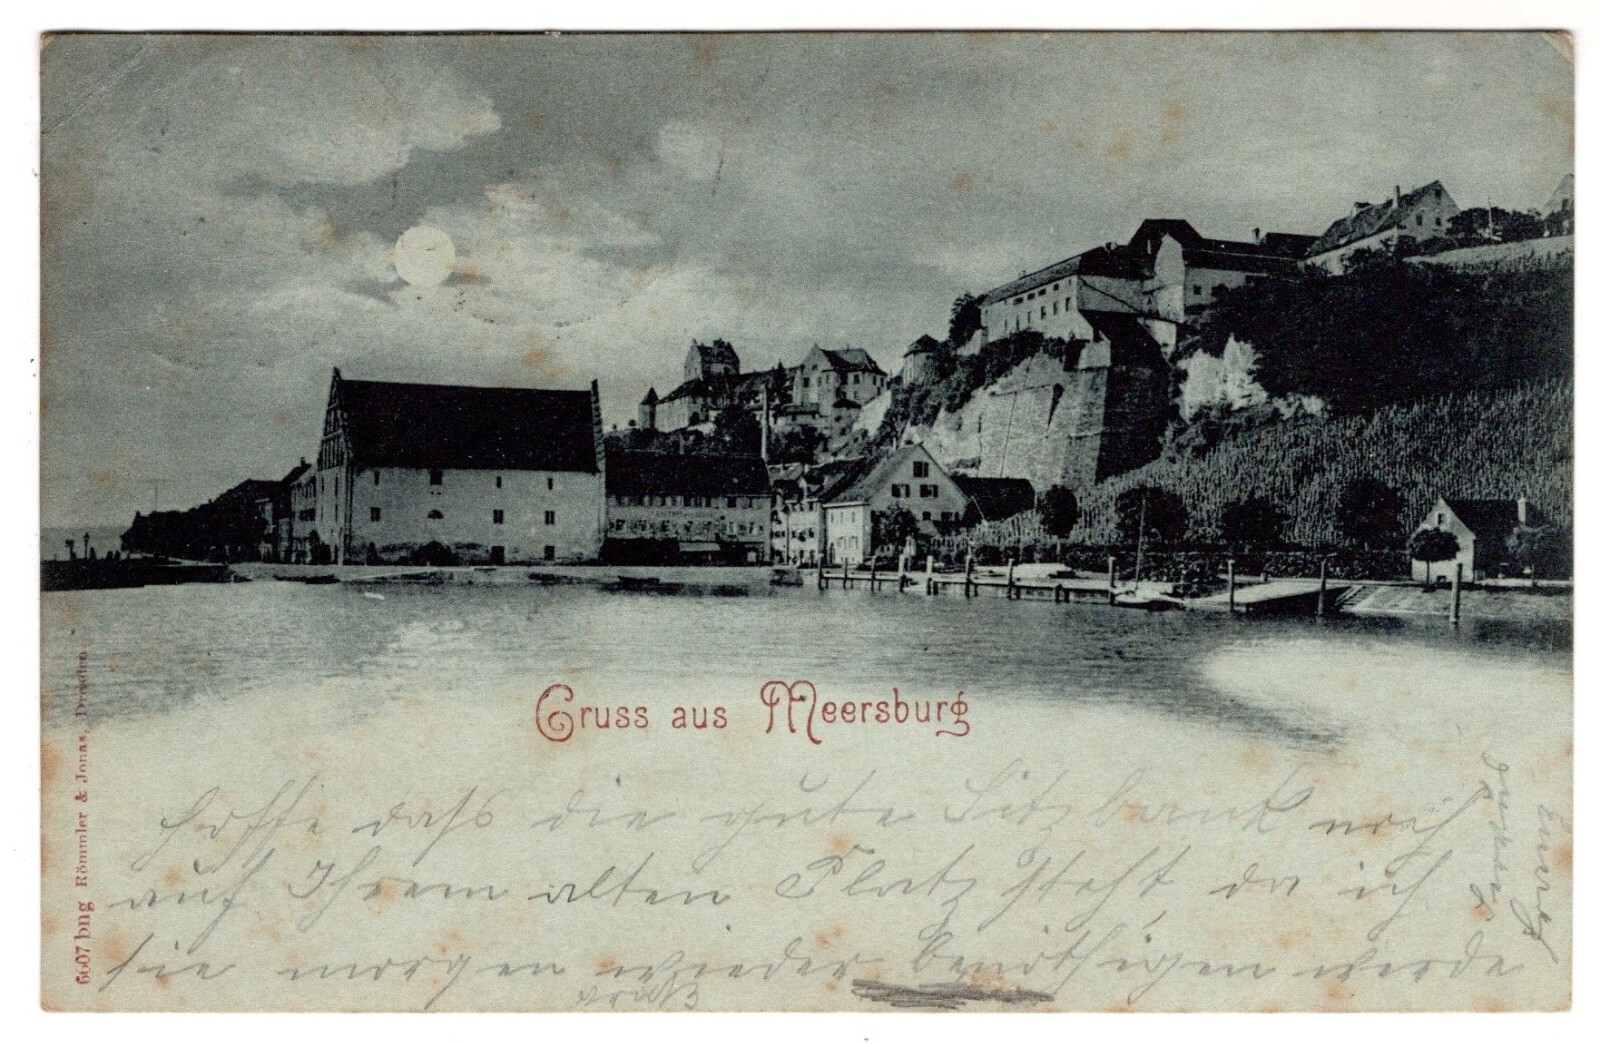 Gruss aus Meersburg
Hoffe daß die gute Sitzbank noch
auf Ihrem alten Platz steht, da ich
sie morgen wieder benöthigen werde
6607 bng Römmler & Jonas, Dresden